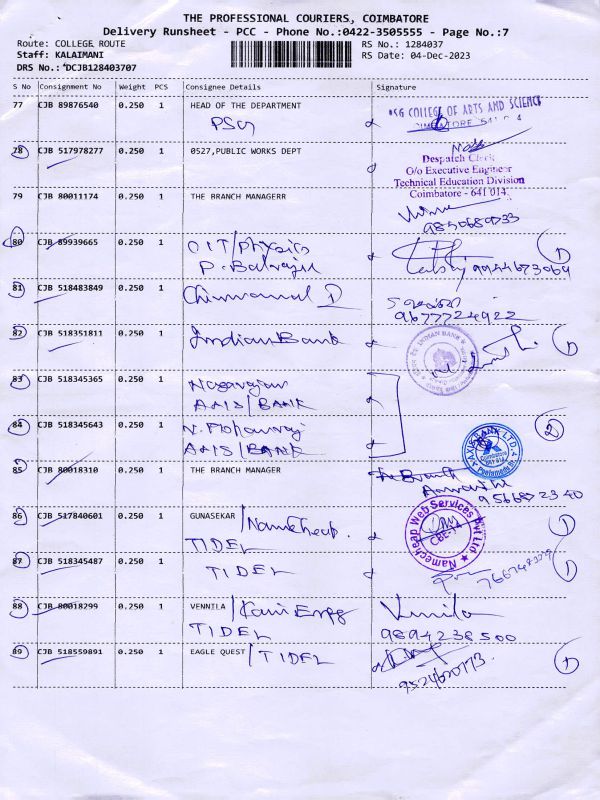 THE PROFESSIONAL COURIERS, COIMBATORE
Delivery Runsheet - PCC - Phone No.:0422-3505555 - Page No.:7
Route: COLLEGE ROUTE
RS No.: 1284037
Staff: KALAIMANI
RS Date: 04-Dec-2023
DRS No.: DCJB128403707
S No Consignment No Weight PCS Consignee Details Signature
77 CJB 89876540 0.250 1 HEAD OF THE DEPARTMENT
PSG
PSG COLLEGE OF ARTS AND SCIENCE
78 CJB 517978277 0.250 1 0527,PUBLIC WORKS DEPT
Despatch Clerk
O/o Executive Engineer
Technical Education Division
Coimbatore - 641 014.
79 CJB 80011174 0.250 1 THE BRANCH MANAGERR
80 CJB 89939665 0.250 1 CIT/Physics
P. Balraju
9944673069
1
81 CJB 518483849 0.250 1 Chinnamal D
9677724922
82 CJB 518351811 0.250 1 Indian Bank
INDIAN BANK
1
83 CJB 518345365 0.250 1 Nagarajan
AXIS/BANK
84 CJB 518345643 0.250 1 N. Mohanraj
AXIS/BANK
AXIS BANK LTD.
Coimbatore
2
85 CJB 80018310 0.250 1 THE BRANCH MANAGER
86 CJB 517840601 0.250 1 GUNASEKAR /Namecheap.
TIDEL
Namecheap Web Services Pvt Ltd
CBE-14
1
87 CJB 518345487 0.250 1 TIDEL
1
88 CJB 80018299 0.250 1 VENNILA
TIDEL
Vennila
9894238500
89 CJB 518559891 0.250 1 EAGLE QUEST /TIDEL
1